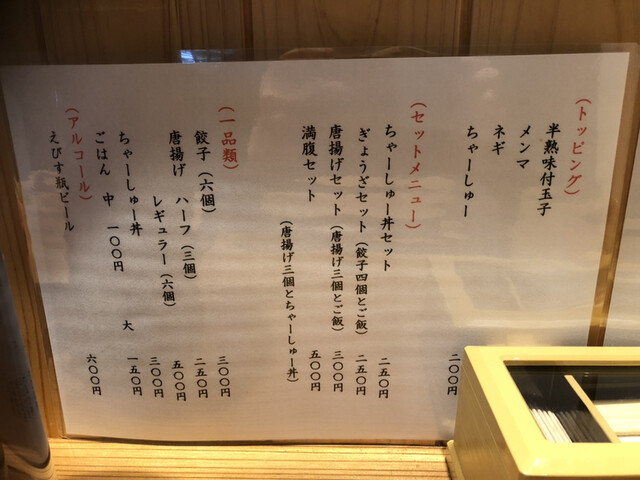 (トッピング)
半熟味付玉子
メンマ
ネギ
ちゃーしゅー 二〇〇円
(セットメニュー)
ちゃーしゅー丼セット 二五〇円
ぎょうざセット(餃子四個とご飯) 二五〇円
唐揚げセット(唐揚げ三個とご飯) 三〇〇円
満腹セット 五〇〇円
(唐揚げ三個とちゃーしゅー丼)
(一品類)
餃子(六個) 三〇〇円
唐揚げ ハーフ(三個) 二五〇円
レギュラー(六個) 五〇〇円
ちゃーしゅー丼 三〇〇円
ごはん 中 一〇〇円 大 一五〇円
(アルコール)
えびす瓶ビール 六〇〇円